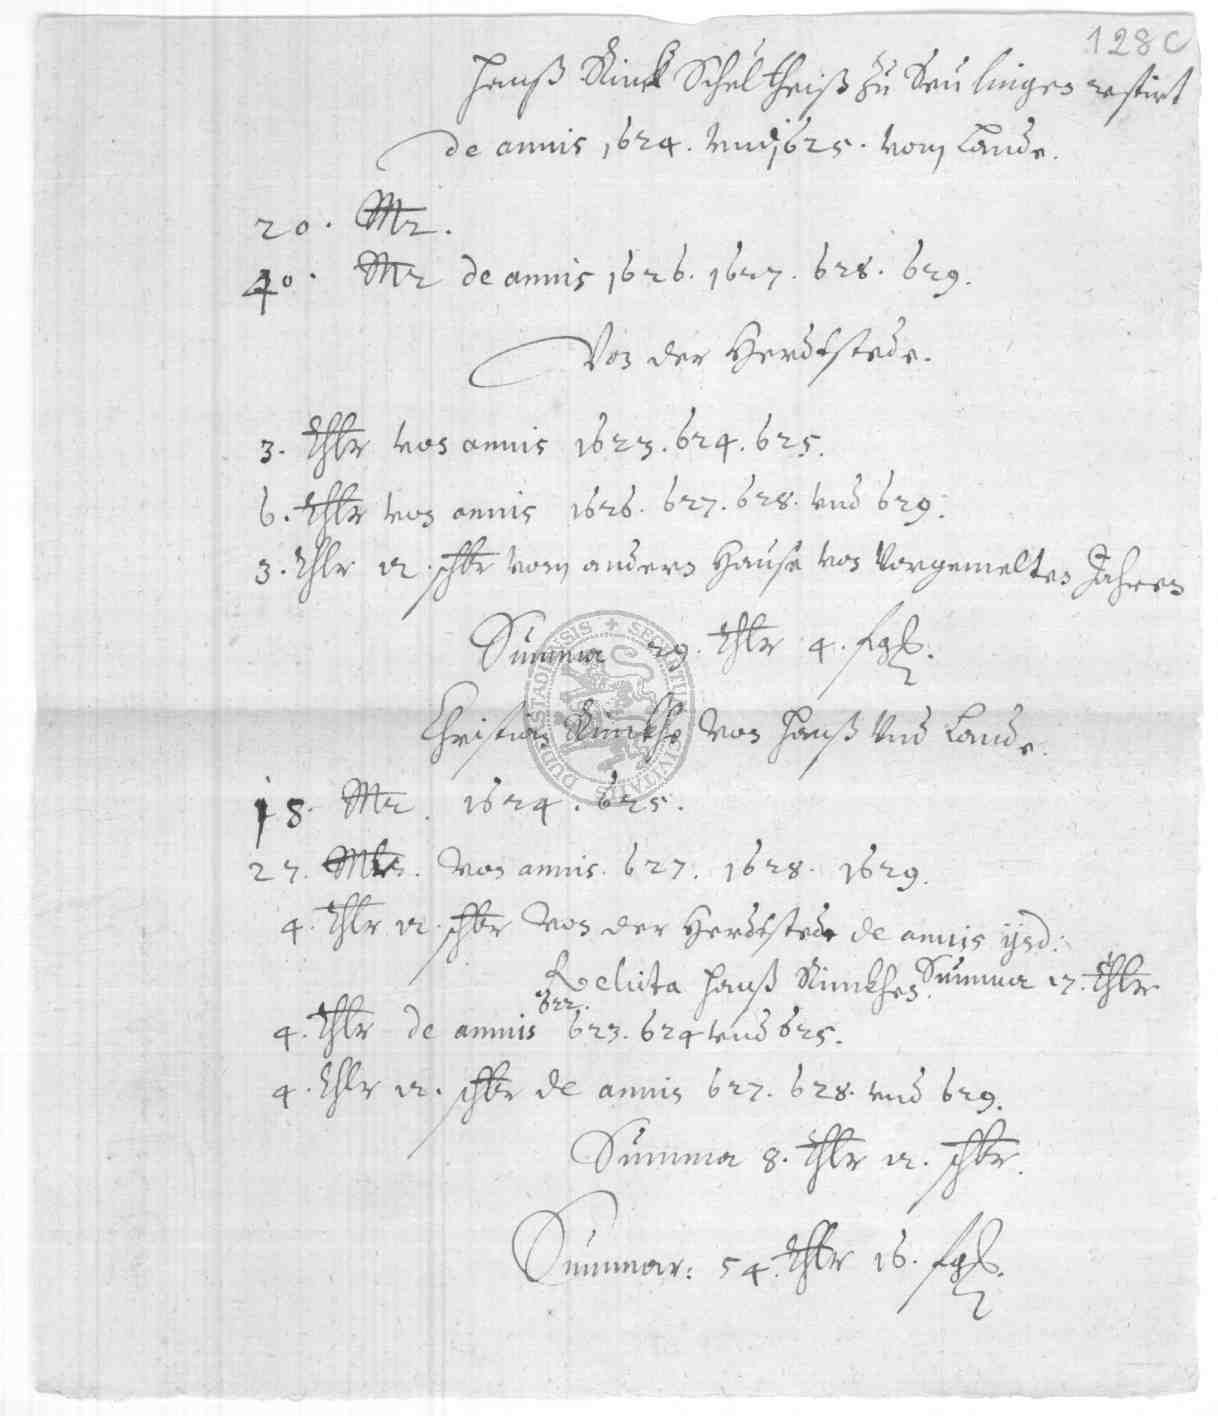 128 c
Hanß Rinck Schultheiß zu Seulingen restirt
de annis 1624. vnd 1625. vom Lande.
20. Mr.
40. Mr de annis 1626. 1627. 628. 629.
Von der Herdtstede.
3. thlr von annis 1623. 624. 625.
6. thlr von annis 1626. 627. 628. vnd 629.
3. thlr 12. schr vom andern Hause von Vorgemelten Jahren
Summa 29. thlr 4.
Christian Rinckhe von Hanß Vnd Lande.
18. Mr. 1624. 625.
27. Mr. von annis. 627. 1628. 1629.
4. thlr 12. schr von der Herdtstede de annis ijsd:
Summa 17. thlr
Relicta Hanß Rinckhen.
622.
4. thlr de annis 623. 624 vnd 625.
4. thlr 12. schr de annis 627. 628. vnd 629.
Summa 8. thlr 12. schr.
Summar: 54. thlr 16.
SECRETUM CIVITATIS DUDERSTADIENSIS